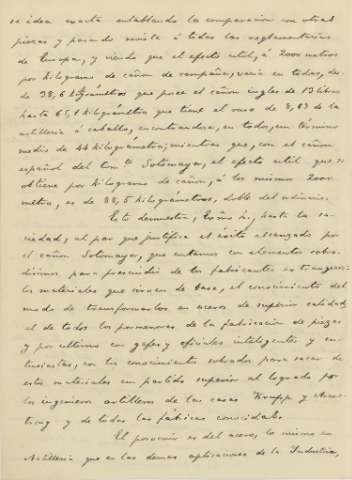 se idea exacta entablando la comparacion con otras
piezas y pasando revista á todas las reglamentarias
de Europa, y viendo que el efecto util, á 2000 metros
por kilogramo de cañon de campaña, varia en todas, des-
de 38,6 kilográmetros que posee el cañon ingles de 13 libras
hasta 65,1 kilográmetros que tiene el ruso de 8,69 de la
artilleria á caballo, encontrandose, en todos, un término
medio de 44 kilográmetros; mientras que, con el cañon
español del Comte Sotomayor, el efecto util que se
obtiene por kilogramo de cañon, á los mismos 2000
metros, es de 88,5 kilográmetros, doble del ordinario.
Esto demuestra, Excmo Sr, hasta la sa-
ciedad, al par que justifica el éxito alcanzado por
el cañon Sotomayor, que contamos con elementos sobra-
disimos para prescindir de los fabricantes extrangeros:
los materiales que sirven de base, el conocimiento del
modo de transformarlos en aceros de superior calidad,
el de todos los pormenores de la fabricacion de piezas
y por ultimo con gefes y oficiales inteligentes y en-
tusiastas, con los conocimientos sobrados para sacar de
estos materiales un partido superior al logrado por
los ingenieros artilleros de las casas Krupp y Arms-
trong y de todas las fábricas conocidas.
El porvenir es del acero, lo mismo en
Artilleria que en las demas aplicaciones de la Industria,